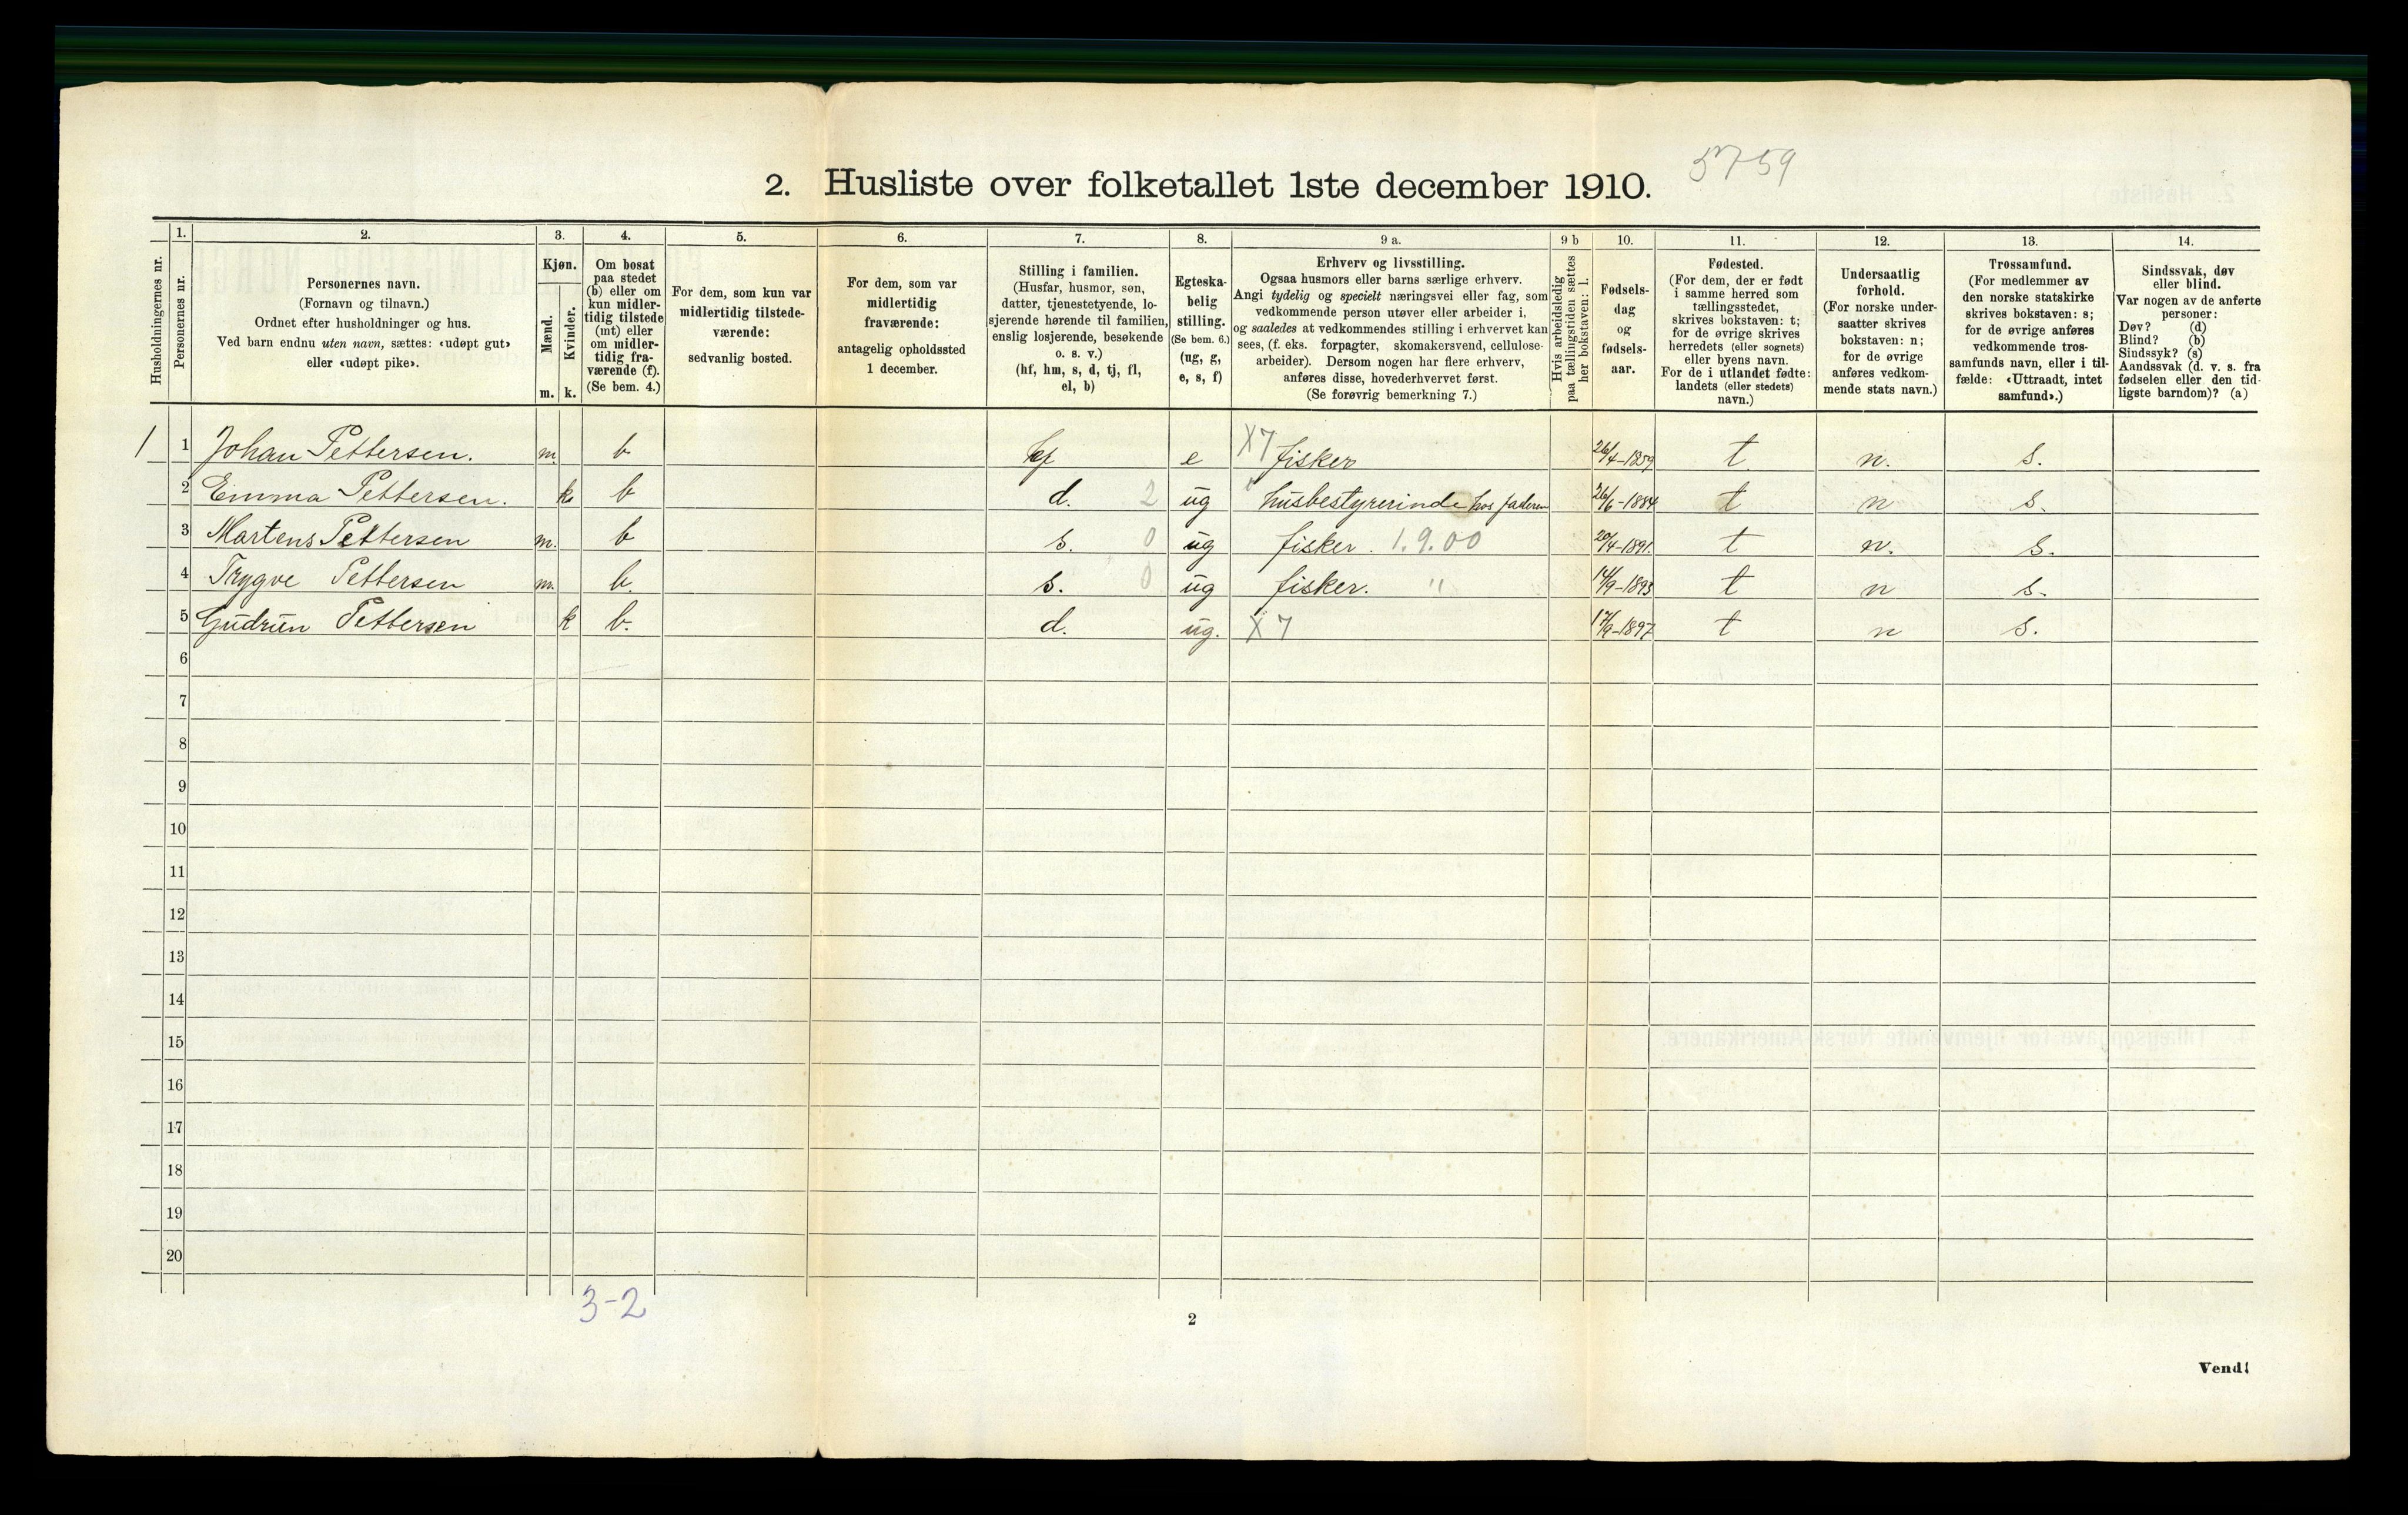 5759
2. Husliste over folketallet 1ste december 1910.
Husholdningernes nr.
1.
Personernes nr.
2.
Personernes navn.
(Fornavn og tilnavn.)
Ordnet efter husholdninger og hus.
Ved barn endnu uten navn, sættes: «udøpt gut»
eller «udøpt pike».
3.
Kjøn.
Mænd.
Kvinder.
m. k.
4.
Om bosat
paa stedet
(b) eller om
kun midler-
tidig tilstede
(mt) eller
om midler-
tidig fra-
værende (f).
(Se bem. 4.)
5.
For dem, som kun var
midlertidig tilstede-
værende:
sedvanlig bosted.
6.
For dem, som var
midlertidig
fraværende:
antagelig opholdssted
1 december.
7.
Stilling i familien.
(Husfar, husmor, søn,
datter, tjenestetyende, lo-
sjerende hørende til familien,
enslig losjerende, besøkende
o. s. v.)
(hf, hm, s, d, tj, fl,
el, b)
8.
Egteska-
belig
stilling.
(Se bem. 6.)
(ug, g,
e, s, f)
9 a.
Erhverv og livsstilling.
Ogsaa husmors eller barns særlige erhverv.
Angi tydelig og specielt næringsvei eller fag, som
vedkommende person utøver eller arbeider i,
og saaledes at vedkommendes stilling i erhvervet kan
sees, (f. eks. forpagter, skomakersvend, cellulose-
arbeider). Dersom nogen har flere erhverv,
anføres disse, hovederhvervet først.
(Se forøvrig bemerkning 7.)
9 b
Hvis arbeidsledig
paa tællingstiden sættes
her bokstaven: l.
10.
Fødsels-
dag
og
fødsels-
aar.
11.
Fødested.
(For dem, der er født
i samme herred som
tællingsstedet,
skrives bokstaven: t;
for de øvrige skrives
herredets (eller sognets)
eller byens navn.
For de i utlandet fødte:
landets (eller stedets)
navn.)
12.
Undersaatlig
forhold.
(For norske under-
saatter skrives
bokstaven: n;
for de øvrige
anføres vedkom-
mende stats navn.)
13.
Trossamfund.
(For medlemmer av
den norske statskirke
skrives bokstaven: s;
for de øvrige anføres
vedkommende tros-
samfunds navn, eller i til-
fælde: «Uttraadt, intet
samfund».)
14.
Sindssvak, døv
eller blind.
Var nogen av de anførte
personer:
Døv? (d)
Blind? (b)
Sindssyk? (s)
Aandssvak (d. v. s. fra
fødselen eller den tid-
ligste barndom)? (a)
1 1 Johan Pettersen. m. b hf e X7 fisker 26/4-1859 t. n. s.
2 Emma Pettersen. k. b d. 2 ug husbestyrerinde hos faderen 26/6-1884 t n s.
3 Martens Pettersen m. b s. 0 ug fisker. 1.9.00 20/4-1891. t n. s.
4 Trygve Pettersen m. b. s. 0 ug fisker. " 14/9-1893 t n s.
5 Gudrun Pettersen k b. d. ug. X7 17/9-1897 t n s.
6
7
8
9
10
11
12
13
14
15
16
17
18
19
20
3-2
2
Vend!